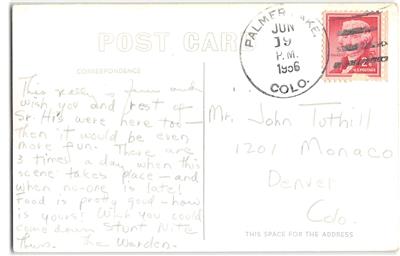 POST CARD
CORRESPONDENCE
PALMER LAKE,
JUN
19
P.M.
1956
COLO.
This really is fun and
wish you and rest of
Sr. Hi's were here too —
then it would be even
more fun. There are
3 times a day when this
scene takes place — and
when no-one is late!
Food is pretty good — how
is yours! Wish you could
come down Stunt Nite
Thurs. The Warden.
Mr. John Tuthill
1201 Monaco
Denver
Colo.
THIS SPACE FOR ADDRESS